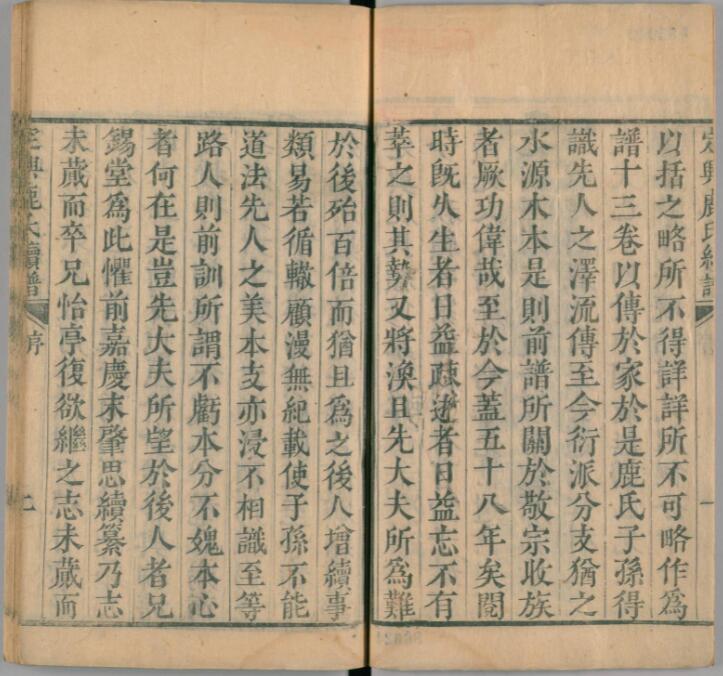 定興鹿氏續譜
以括之略所不得詳詳所不可略作為
譜十三卷以傳於家於是鹿氏子孫得
識先人之澤流傳至今衍派分支猶之
水源木本是則前譜所關於敬宗收族
者厥功偉哉至於今蓋五十八年矣閱
時旣久生者日益疎逝者日益忘不有
萃之則其勢又將渙且先大夫所為難
於後殆百倍而猶且為之後人增續事
類易若循轍顧漫無紀載使子孫不能
道法先人之美本支亦浸不相識至等
路人則前訓所謂不虧本分不媿本心
者何在是豈先大夫所望於後人者兄
錫堂為此懼前嘉慶末肇思續纂乃志
未蕆而卒兄怡亭復欲繼之志未蕆而
定興鹿氏續譜
序